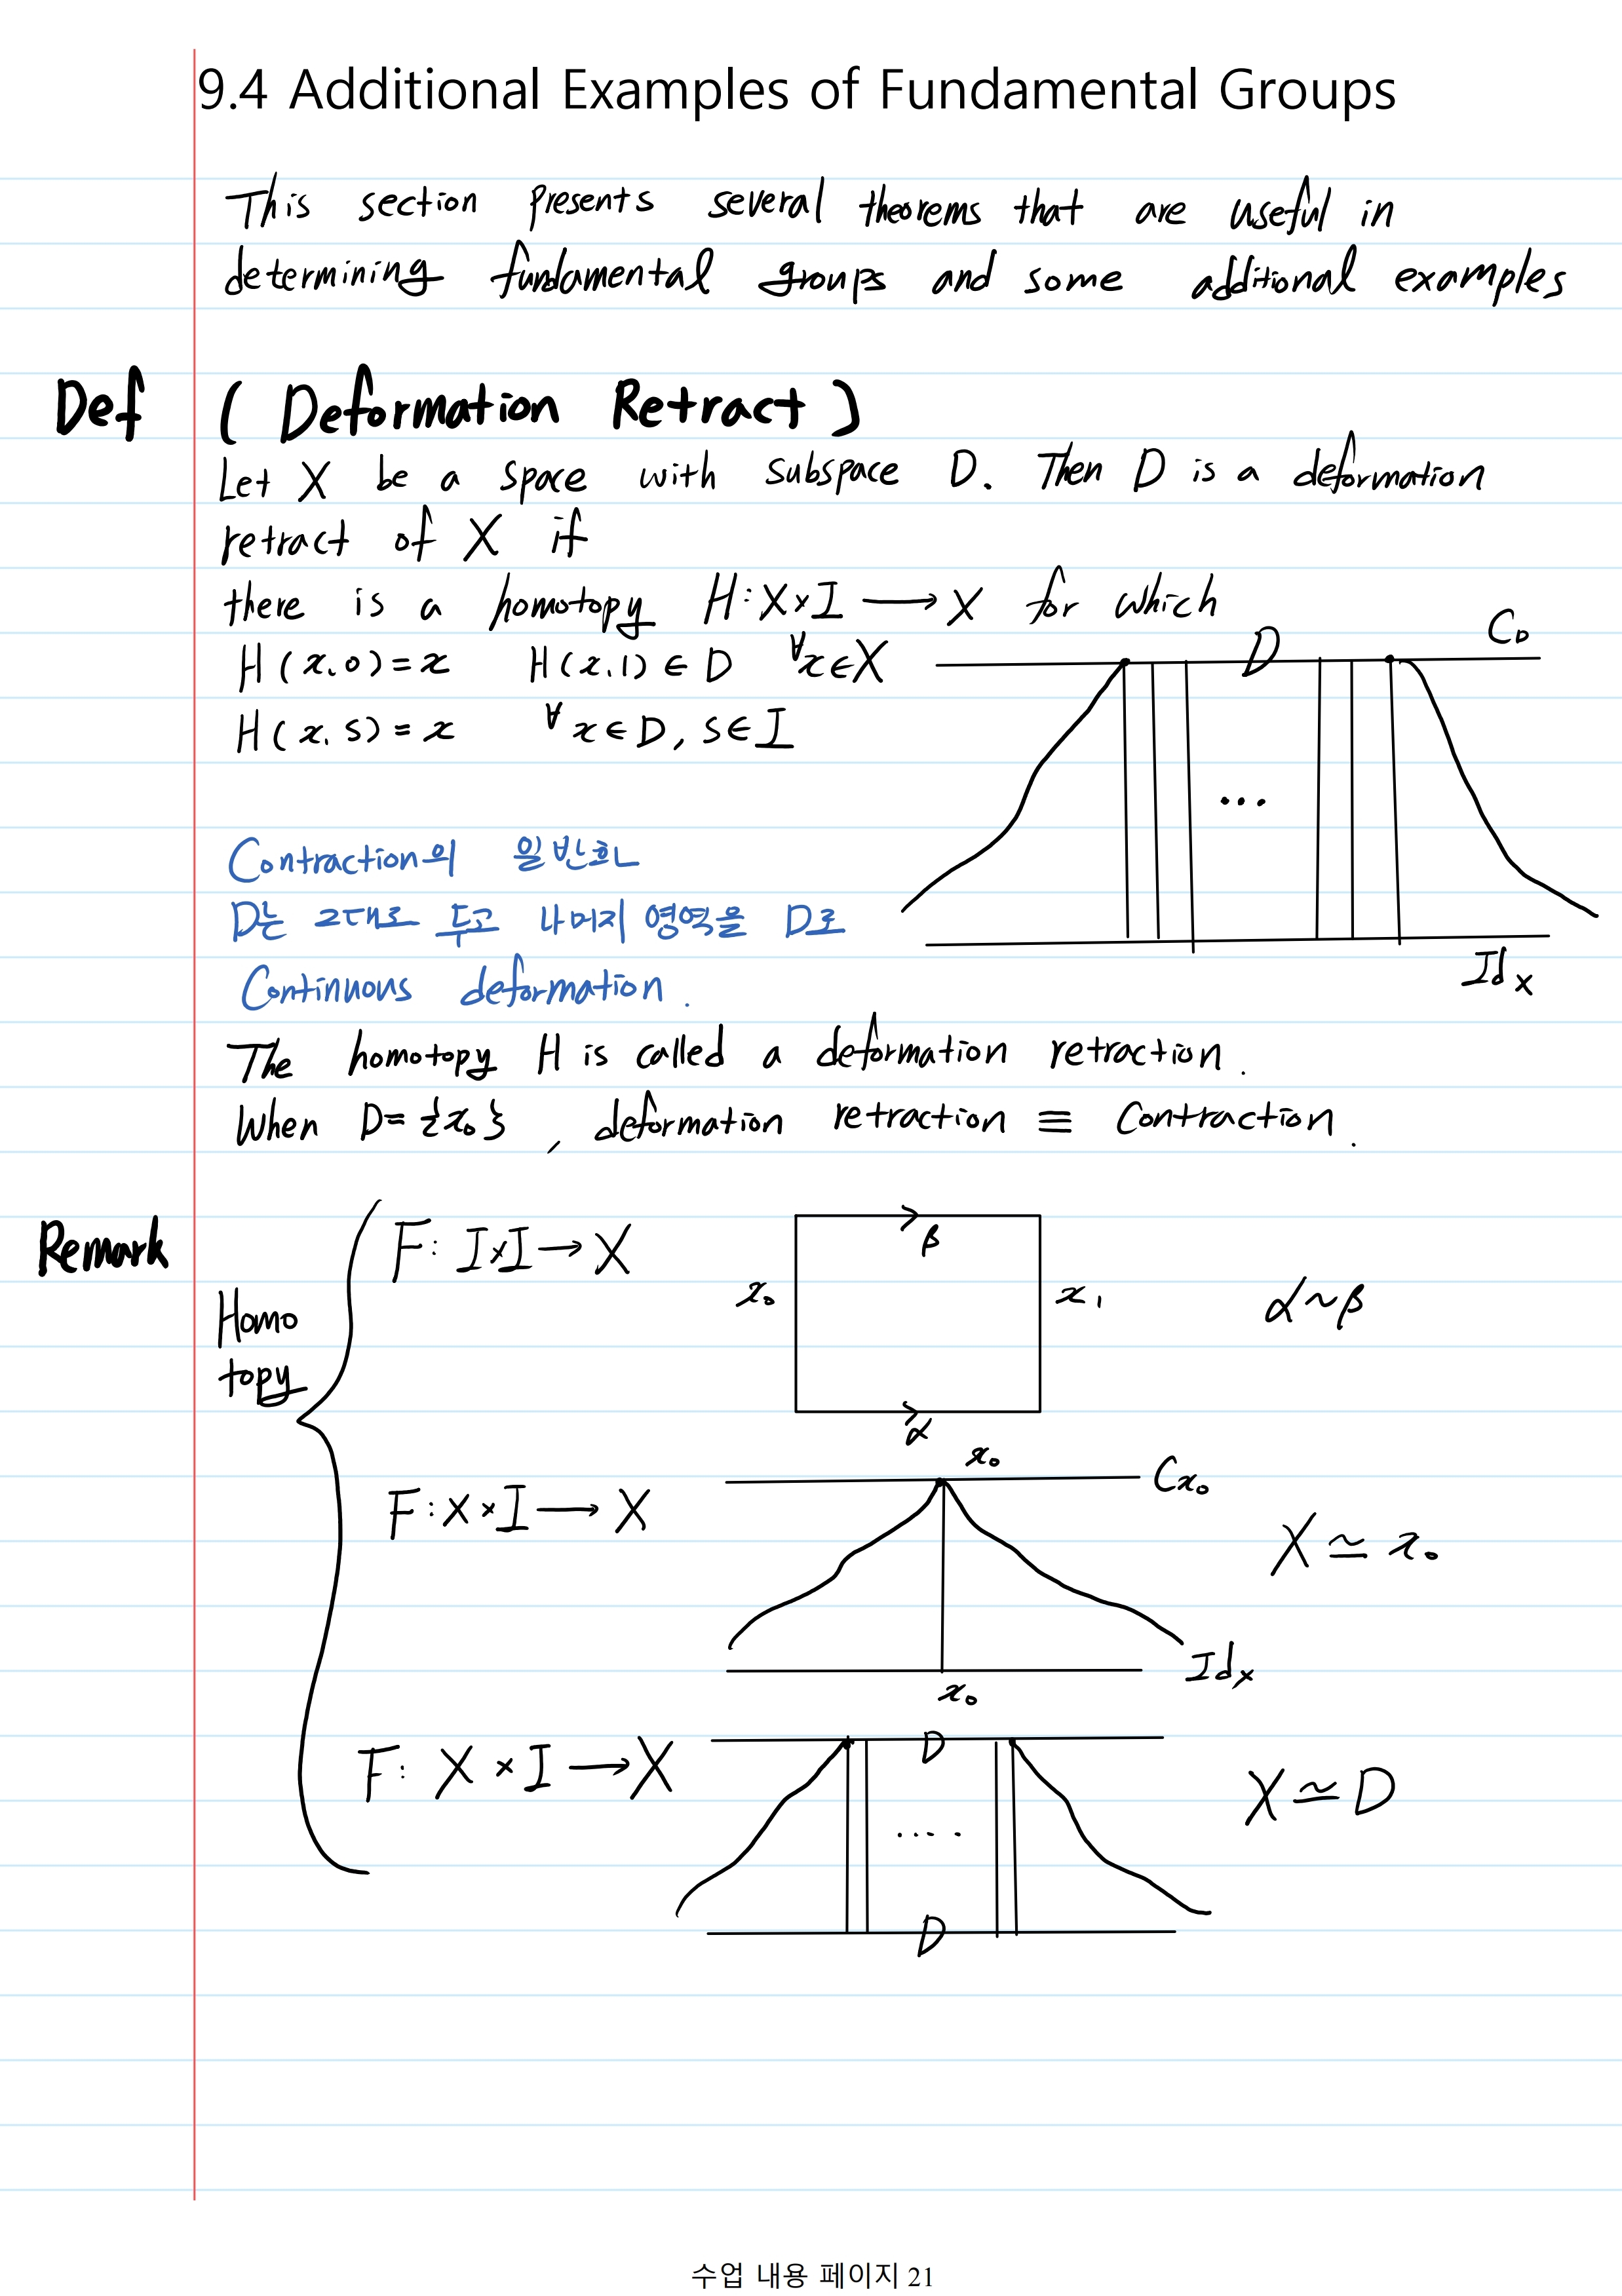 9.4 Additional Examples of Fundamental Groups
This section presents several theorems that are useful in
determining fundamental groups and some additional examples
Def (Deformation Retract)
Let X be a space with subspace D. Then D is a deformation
retract of X if
there is a homotopy H: X×I ⟶ X for which
H(x,0)=x H(x,1)∈D ∀x∈X
H(x,s)=x ∀x∈D, s∈I
D C_D
...
Id_X
Contraction의 일반화
D는 그대로 두고 나머지 영역을 D로
Continuous deformation.
The homotopy H is called a deformation retraction.
When D={x₀}, deformation retraction ≡ Contraction.
Remark
Homo
topy
F: I×I ⟶ X
β
x₀ x₁ α~β
α
F: X×I ⟶ X
x₀ C_x₀
X ≃ x₀
Id_X
x₀
F: X×I ⟶ X
D
X ≃ D
....
D
수업 내용 페이지 21